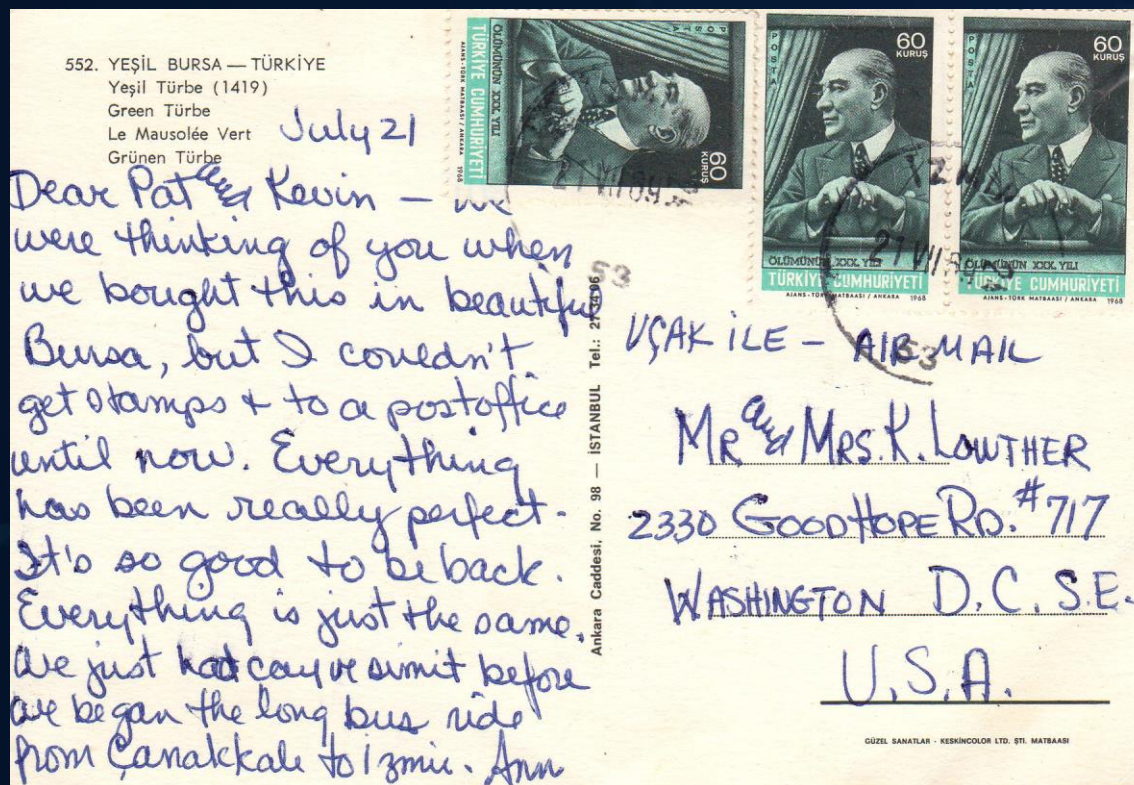 552. YEŞİL BURSA — TÜRKİYE
Yeşil Türbe (1419)
Green Türbe
Le Mausolée Vert
Grünen Türbe
July 21
Dear Pat and Kevin — we
were thinking of you when
we bought this in beautiful
Bursa, but I couldn't
get stamps & to a postoffice
until now. Everything
has been really perfect.
It's so good to be back.
Everything is just the same.
We just had cay ve simit before
we began the long bus ride
from Çanakkale to Izmir. Ann
Ankara Caddesi, No. 98 — İSTANBUL Tel.: 27 34 06
POSTA
60
KURUŞ
ÖLÜMÜNÜN XXX. YILI
TÜRKİYE CUMHURİYETİ
AJANS-TÜRK MATBAASI / ANKARA 1968
POSTA
60
KURUŞ
ÖLÜMÜNÜN XXX. YILI
TÜRKİYE CUMHURİYETİ
AJANS-TÜRK MATBAASI / ANKARA 1968
POSTA
60
KURUŞ
ÖLÜMÜNÜN XXX. YILI
TÜRKİYE CUMHURİYETİ
AJANS-TÜRK MATBAASI / ANKARA 1968
53
53
UÇAK İLE — AIR MAIL
MR and MRS. K. LOWTHER
2330 GOOD HOPE RD. #717
WASHINGTON D.C. S.E.
U.S.A.
GÜZEL SANATLAR - KESKİNCOLOR LTD. ŞTİ. MATBAASI